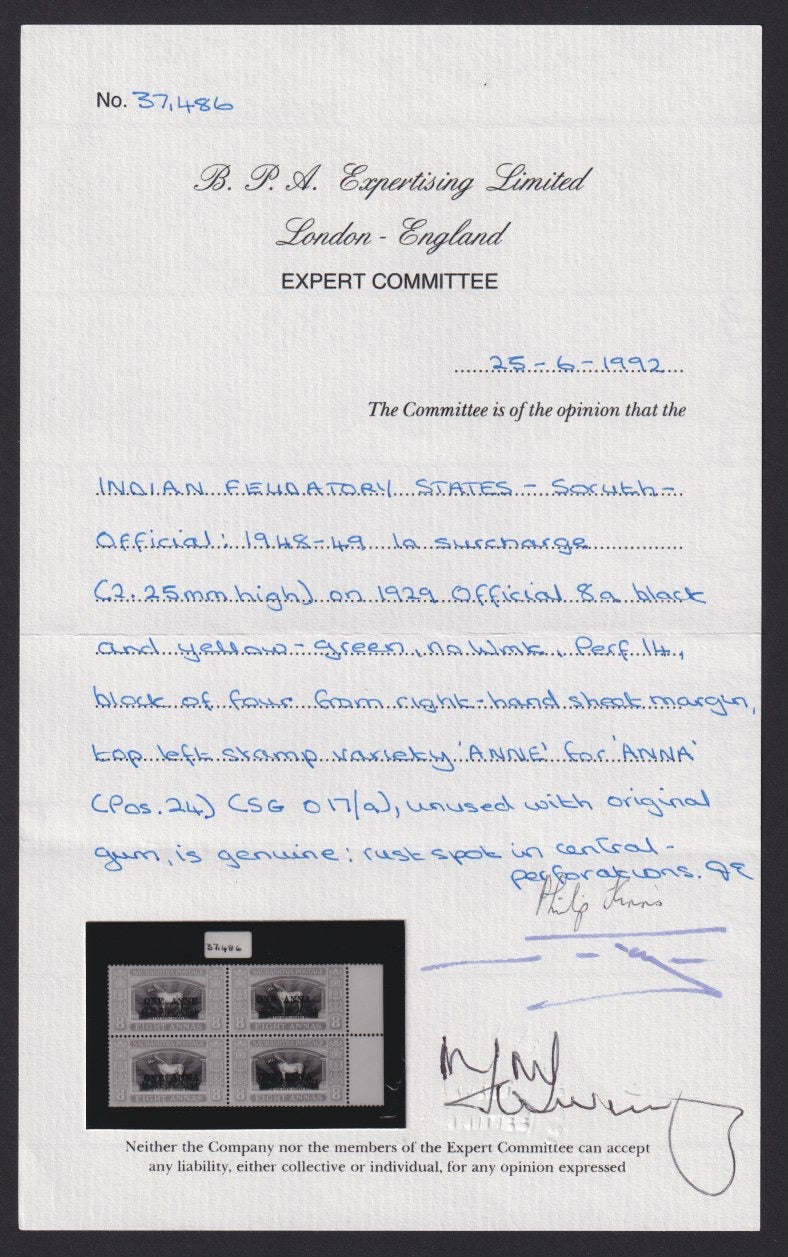 No. 37,486
B. P. A. Expertising Limited
London - England
EXPERT COMMITTEE
25-6-1992
The Committee is of the opinion that the
INDIAN FEUDATORY STATES - Soruth -
Official: 1948-49 1a surcharge
(2.25mm high) on 1929 Official 8a black
and yellow-green, no Wmk, Perf 14,
block of four from right-hand sheet margin,
top left stamp variety 'ANNE' for 'ANNA'
(Pos.24) (SG O17/a), unused with original
gum, is genuine: rust spot in central -
perforations.
Philip
37,486
SAURASHTRA POSTAGE SAURASHTRA POSTAGE
ONE ANNE ONE ANNA
8 EIGHT ANNAS 8 8 EIGHT ANNAS 8
SAURASHTRA POSTAGE SAURASHTRA POSTAGE
ONE ANNA
8 EIGHT ANNAS 8 8 EIGHT ANNAS 8
Neither the Company nor the members of the Expert Committee can accept
any liability, either collective or individual, for any opinion expressed